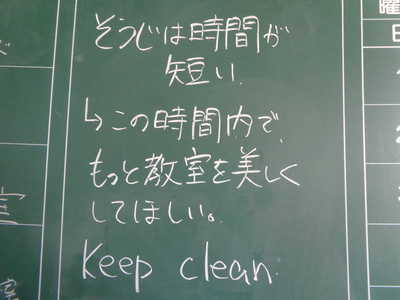 そうじは時間が
短い.
↳この時間内で、
もっと教室を美しく
してほしい。
Keep clean.
曜